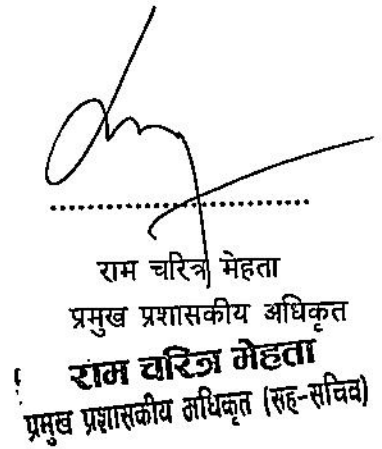 राम चरित्र मेहता
प्रमुख प्रशासकीय अधिकृत
राम चरित्र मेहता
प्रमुख प्रशासकीय अधिकृत (सह-सचिव)